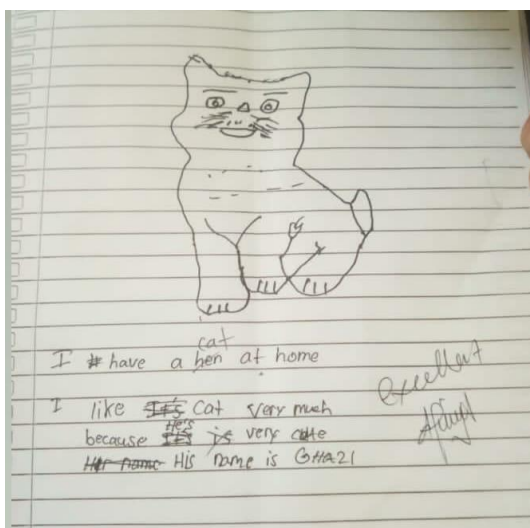 cat
I have a hen at home
I like It's Cat very much
He's
because It's is very cute
Her name His name is GHAZI
excellent